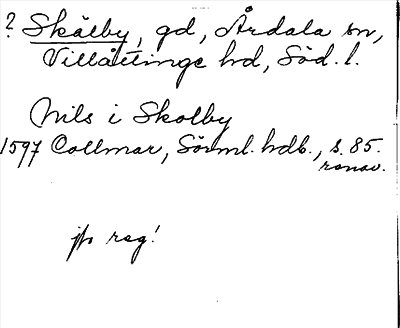 ? Skälby, gd, Årdala sn,
Villåttinge hd, Söd. l.
Nils i Skolby
1597 Collmar, Sörml. hdb., s. 85.
ronov.
jfr reg!